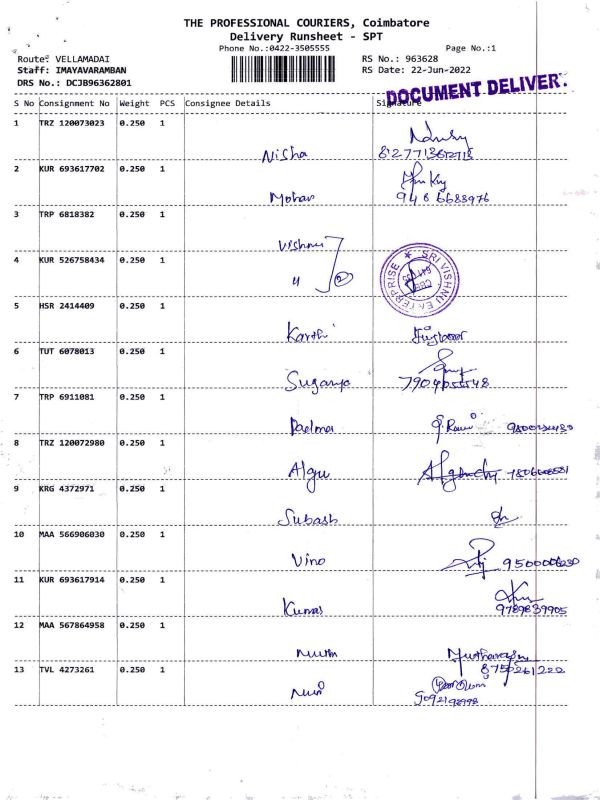 THE PROFESSIONAL COURIERS, Coimbatore
Delivery Runsheet - SPT
Phone No.:0422-3505555
Page No.:1
Route: VELLAMADAI
RS No.: 963628
Staff: IMAYAVARAMBAN
RS Date: 22-Jun-2022
DRS No.: DCJB96362801
DOCUMENT DELIVER.
S No Consignment No Weight PCS Consignee Details Signature
1 TRZ 120073023 0.250 1
Nisha
2 KUR 693617702 0.250 1
Mohan
3 TRP 6818382 0.250 1
Vishnu
4 KUR 526758434 0.250 1
SRI VISHNU ENTERPRISE
5 HSR 2414409 0.250 1
Karthi
6 TUT 6078013 0.250 1
Suganya
7 TRP 6911081 0.250 1
8 TRZ 120072980 0.250 1
Algu
9 KRG 4372971 0.250 1
Subash
10 MAA 566906030 0.250 1
Vino
11 KUR 693617914 0.250 1
Kumar 9789839905
12 MAA 567864958 0.250 1
8750261222
13 TVL 4273261 0.250 1